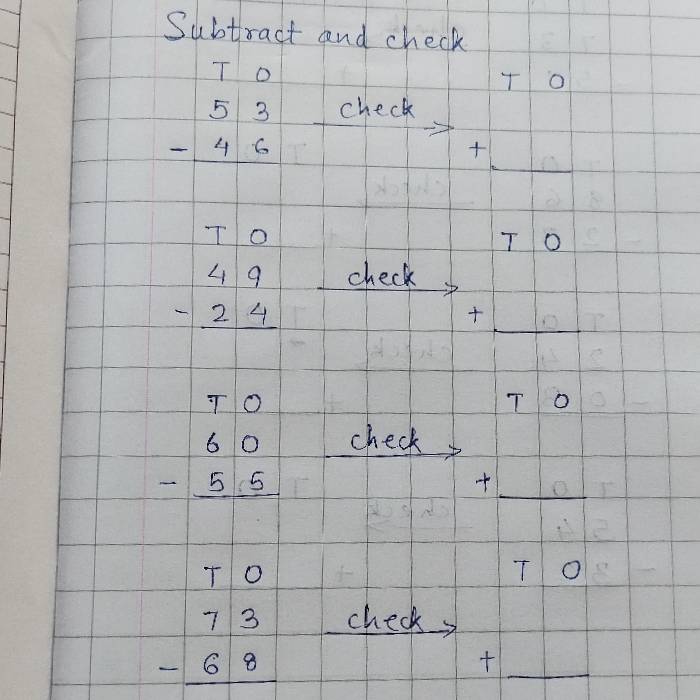 Subtract and check
T O T O
5 3 check
- 4 6 +
T O T O
4 9 check
- 2 4 +
T O T O
6 0 check
- 5 5 +
T O T O
7 3 check
- 6 8 +